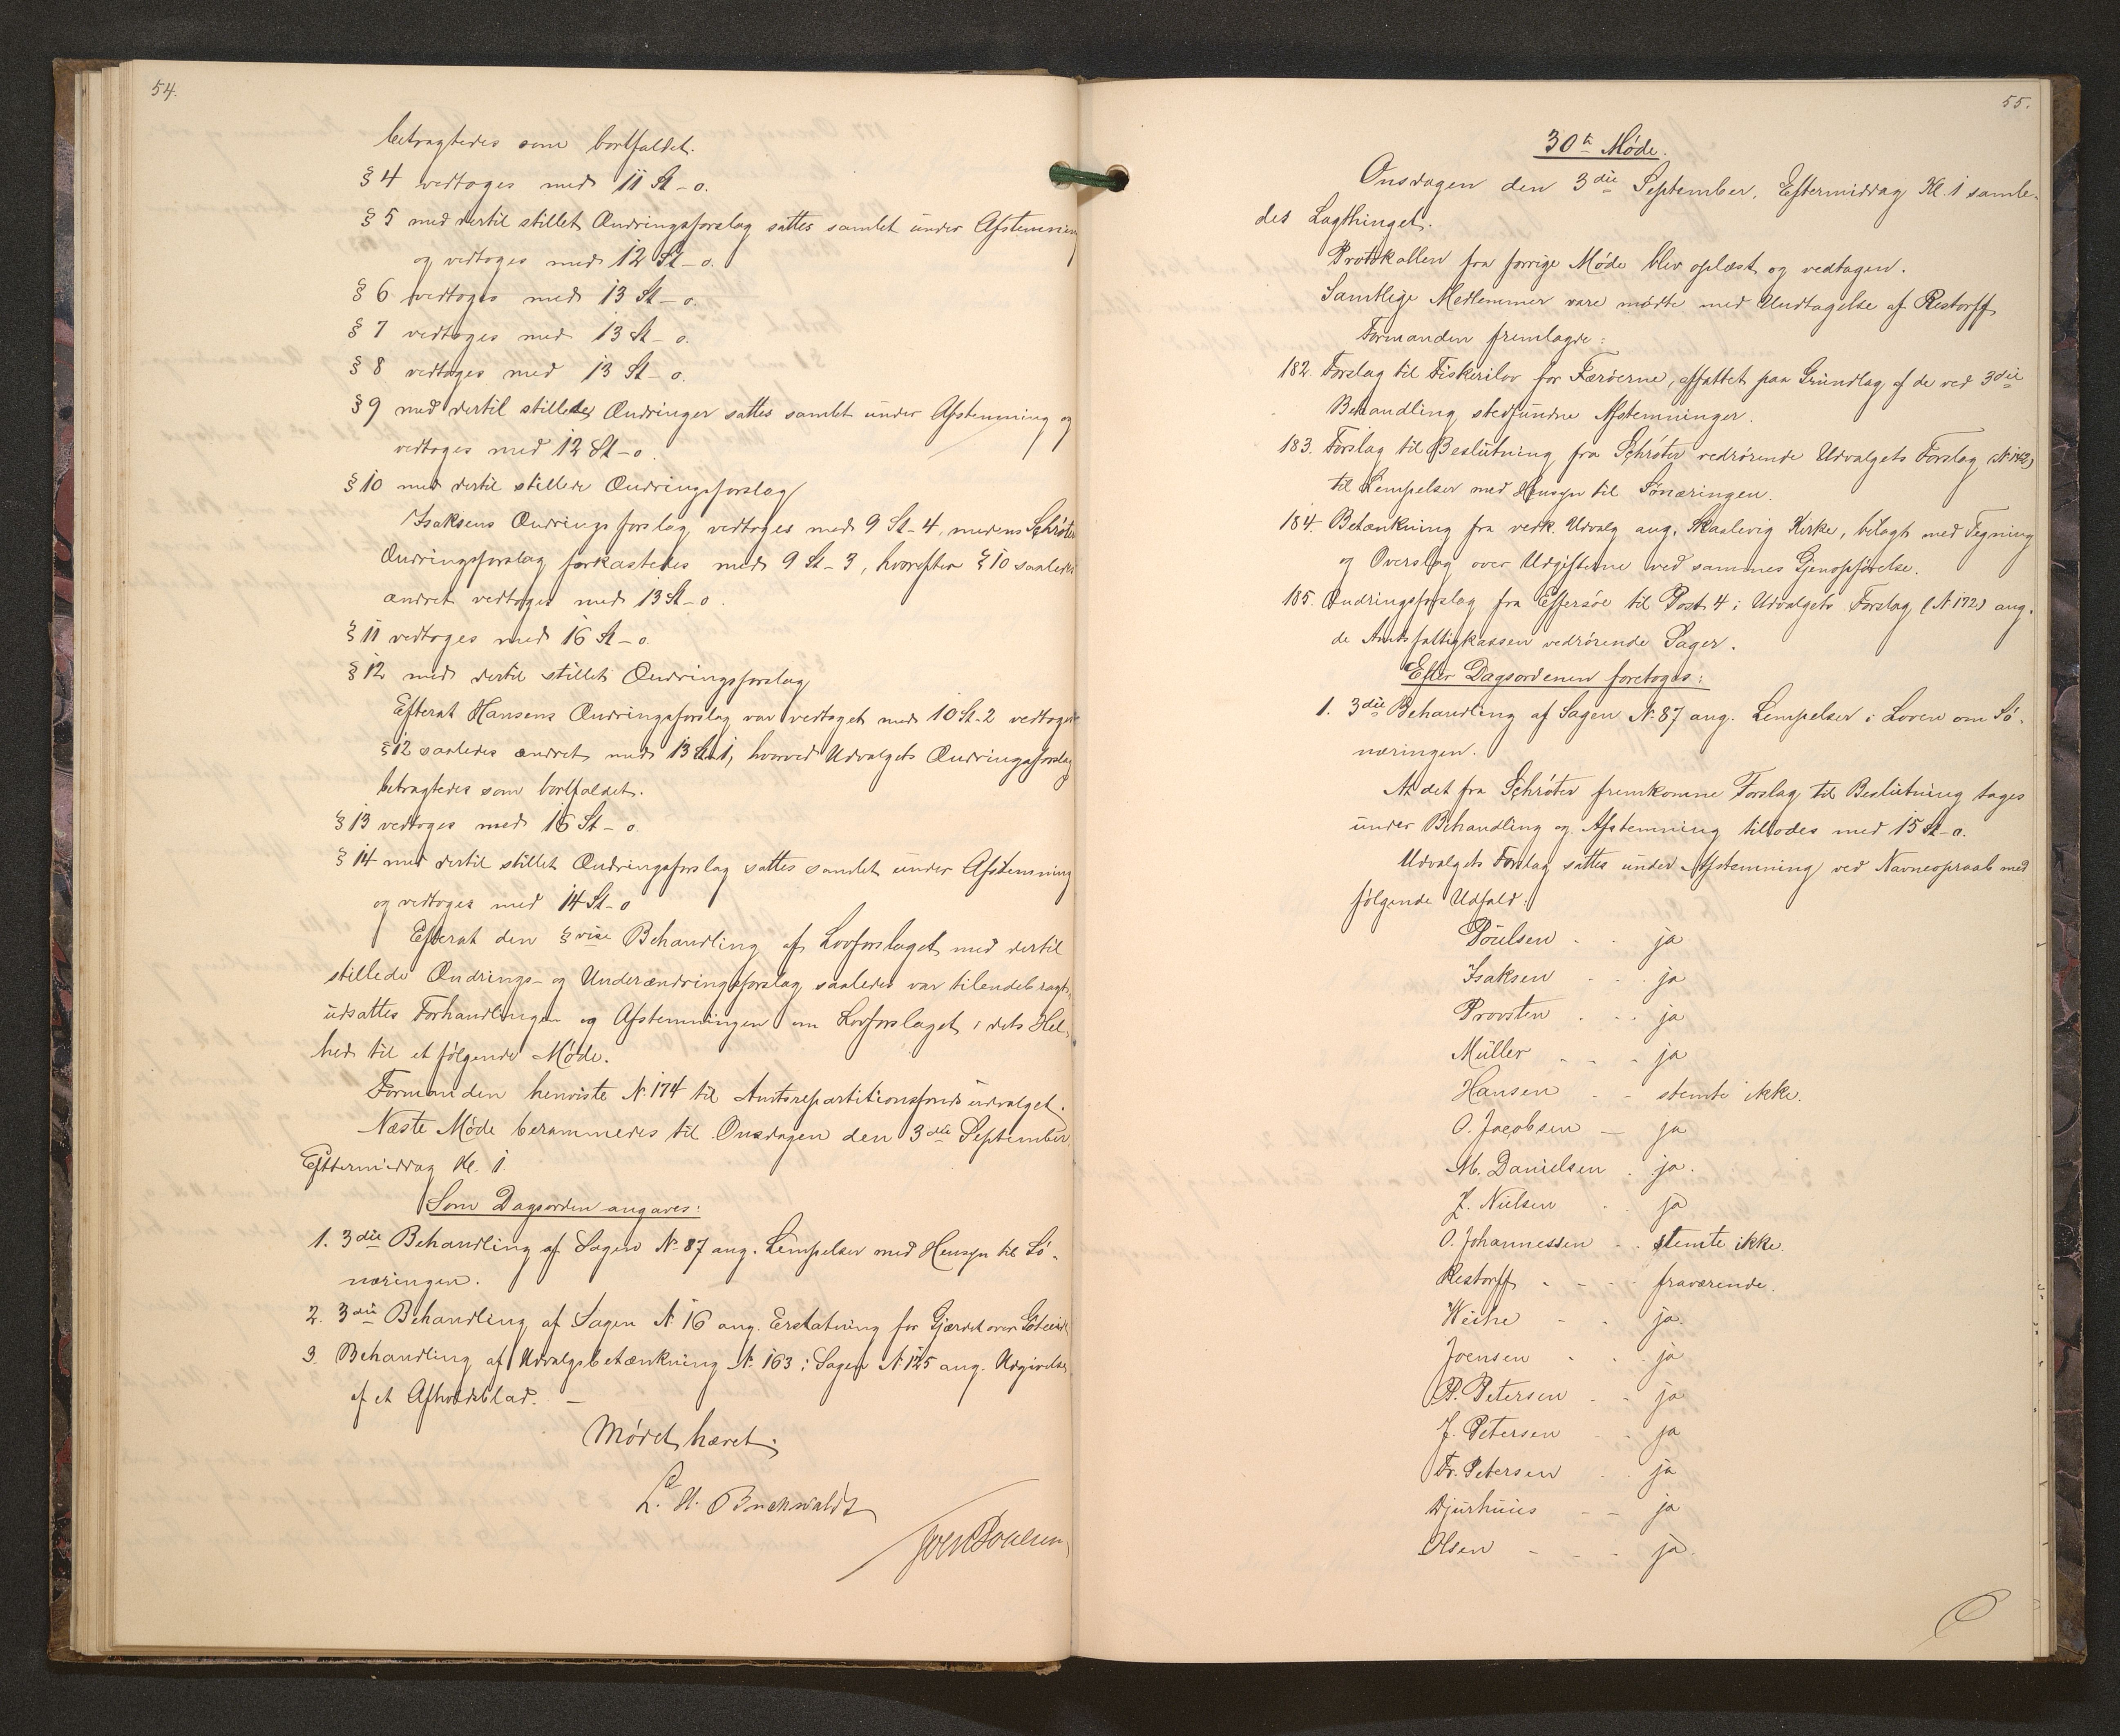 54.
betragtedes som bortfaldet.
§ 4 vedtoges med 11 St - o.
§ 5 med dertil stillet Ændringsforslag sattes samlet under Afstemning
og vedtoges med 12 St - o.
§ 6 vedtoges med 13 St - o.
§ 7 vedtoges med 13 St - o.
§ 8 vedtoges med 13 St - o.
§ 9 med dertil stillede Ændringer sattes samlet under Afstemning og
vedtoges med 12 St - o.
§ 10 med dertil stillede Ændringsforslag
Isaksens Ændringsforslag vedtoges med 9 St - 4, medens Schrøters
Ændringsforslag forkastedes med 9 St - 3, hvorefter § 10 saaledes
ændret vedtoges med 13 St - o.
§ 11 vedtoges med 16 St - o.
§ 12 med dertil stillet Ændringsforslag
Efterat Hansens Ændringsforslag var vedtaget med 10 St - 2 vedtoges
§ 12 saaledes ændret med 13 St - 1, hvorved Udvalgets Ændringsforslag
betragtedes som bortfaldet.
§ 13 vedtoges med 16 St - o.
§ 14 med dertil stillet Ændringsforslag sattes samlet under Afstemning
og vedtoges med 14 St - o
Efterat den § vise Behandling af Lovforslaget med dertil
stillede Ændrings- og Underændringsforslag saaledes var tilendebragt,
udsattes Forhandlingen og Afstemningen om Lovforslaget i dets Hel-
hed til et følgende Møde.
Formanden henviste N. 174 til Amtsrepartitionsfondsudvalget.
Næste Møde berammedes til Onsdagen den 3die September
Eftermiddag Kl. 1.
Som Dagsorden angaves:
1. 3die Behandling af Sagen N. 87 ang. Lempelser med Hensyn til Sø-
næringen.
2. 3die Behandling af Sagen N. 16 ang. Erstatning for Gjærdet over
3. Behandling af Udvalgsbetænkning N. 163 i Sagen N. 125 ang. Udgivelse
af et Afholdsblad. -
Mødet hævet.
L. H. Buchwaldt
Joen Poulsen
55.
30te Møde.
Onsdagen den 3die September, Eftermiddag Kl. 1 samle-
des Lagthinget.
Protokollen fra forrige Møde blev oplæst og vedtagen.
Samtlige Medlemmer vare mødte med Undtagelse af Restorff
Formanden fremlagde:
182. Forslag til Fiskerilov for Færøerne, affattet paa Grundlag af de ved 3die
Behandling stedfundne Afstemninger.
183. Forslag til Beslutning fra Schrøter vedrørende Udvalgets Forslag (N 142)
til Lempelser med Hensyn til Sønæringen.
184. Betænkning fra vedk. Udvalg ang. Skaalevig Kirke, bilagt med Tegning
og Overslag over Udgifterne ved sammes Gjenopførelse.
185. Ændringsforslag fra Effersøe til Post 4 i Udvalgets Forslag (N 172) ang.
de Amtsfattigkassen vedrørende Sager.
Efter Dagsordenen foretoges:
1. 3die Behandling af Sagen N. 87 ang. Lempelser i Loven om Sø-
næringen.
At det fra Schrøter fremkomne Forslag til Beslutning tages
under Behandling og Afstemning tillodes med 15 St - o.
Udvalgets Forslag sattes under Afstemning ved Navneopraab med
følgende Udfald:
Poulsen - - ja
Isaksen - - ja
Provsten - - ja
Müller - - - ja
Hansen - - stemte ikke.
O. Jacobsen - ja
M. Danielsen - ja.
J. Nielsen - ja
O. Johannessen - - stemte ikke.
Restorff - - - fraværende.
Weihe - - ja.
Joensen - - ja
P. Petersen - - ja
J. Petersen - - ja
Fr. Petersen - - ja
Djurhuus - - ja
Olsen - - - ja.